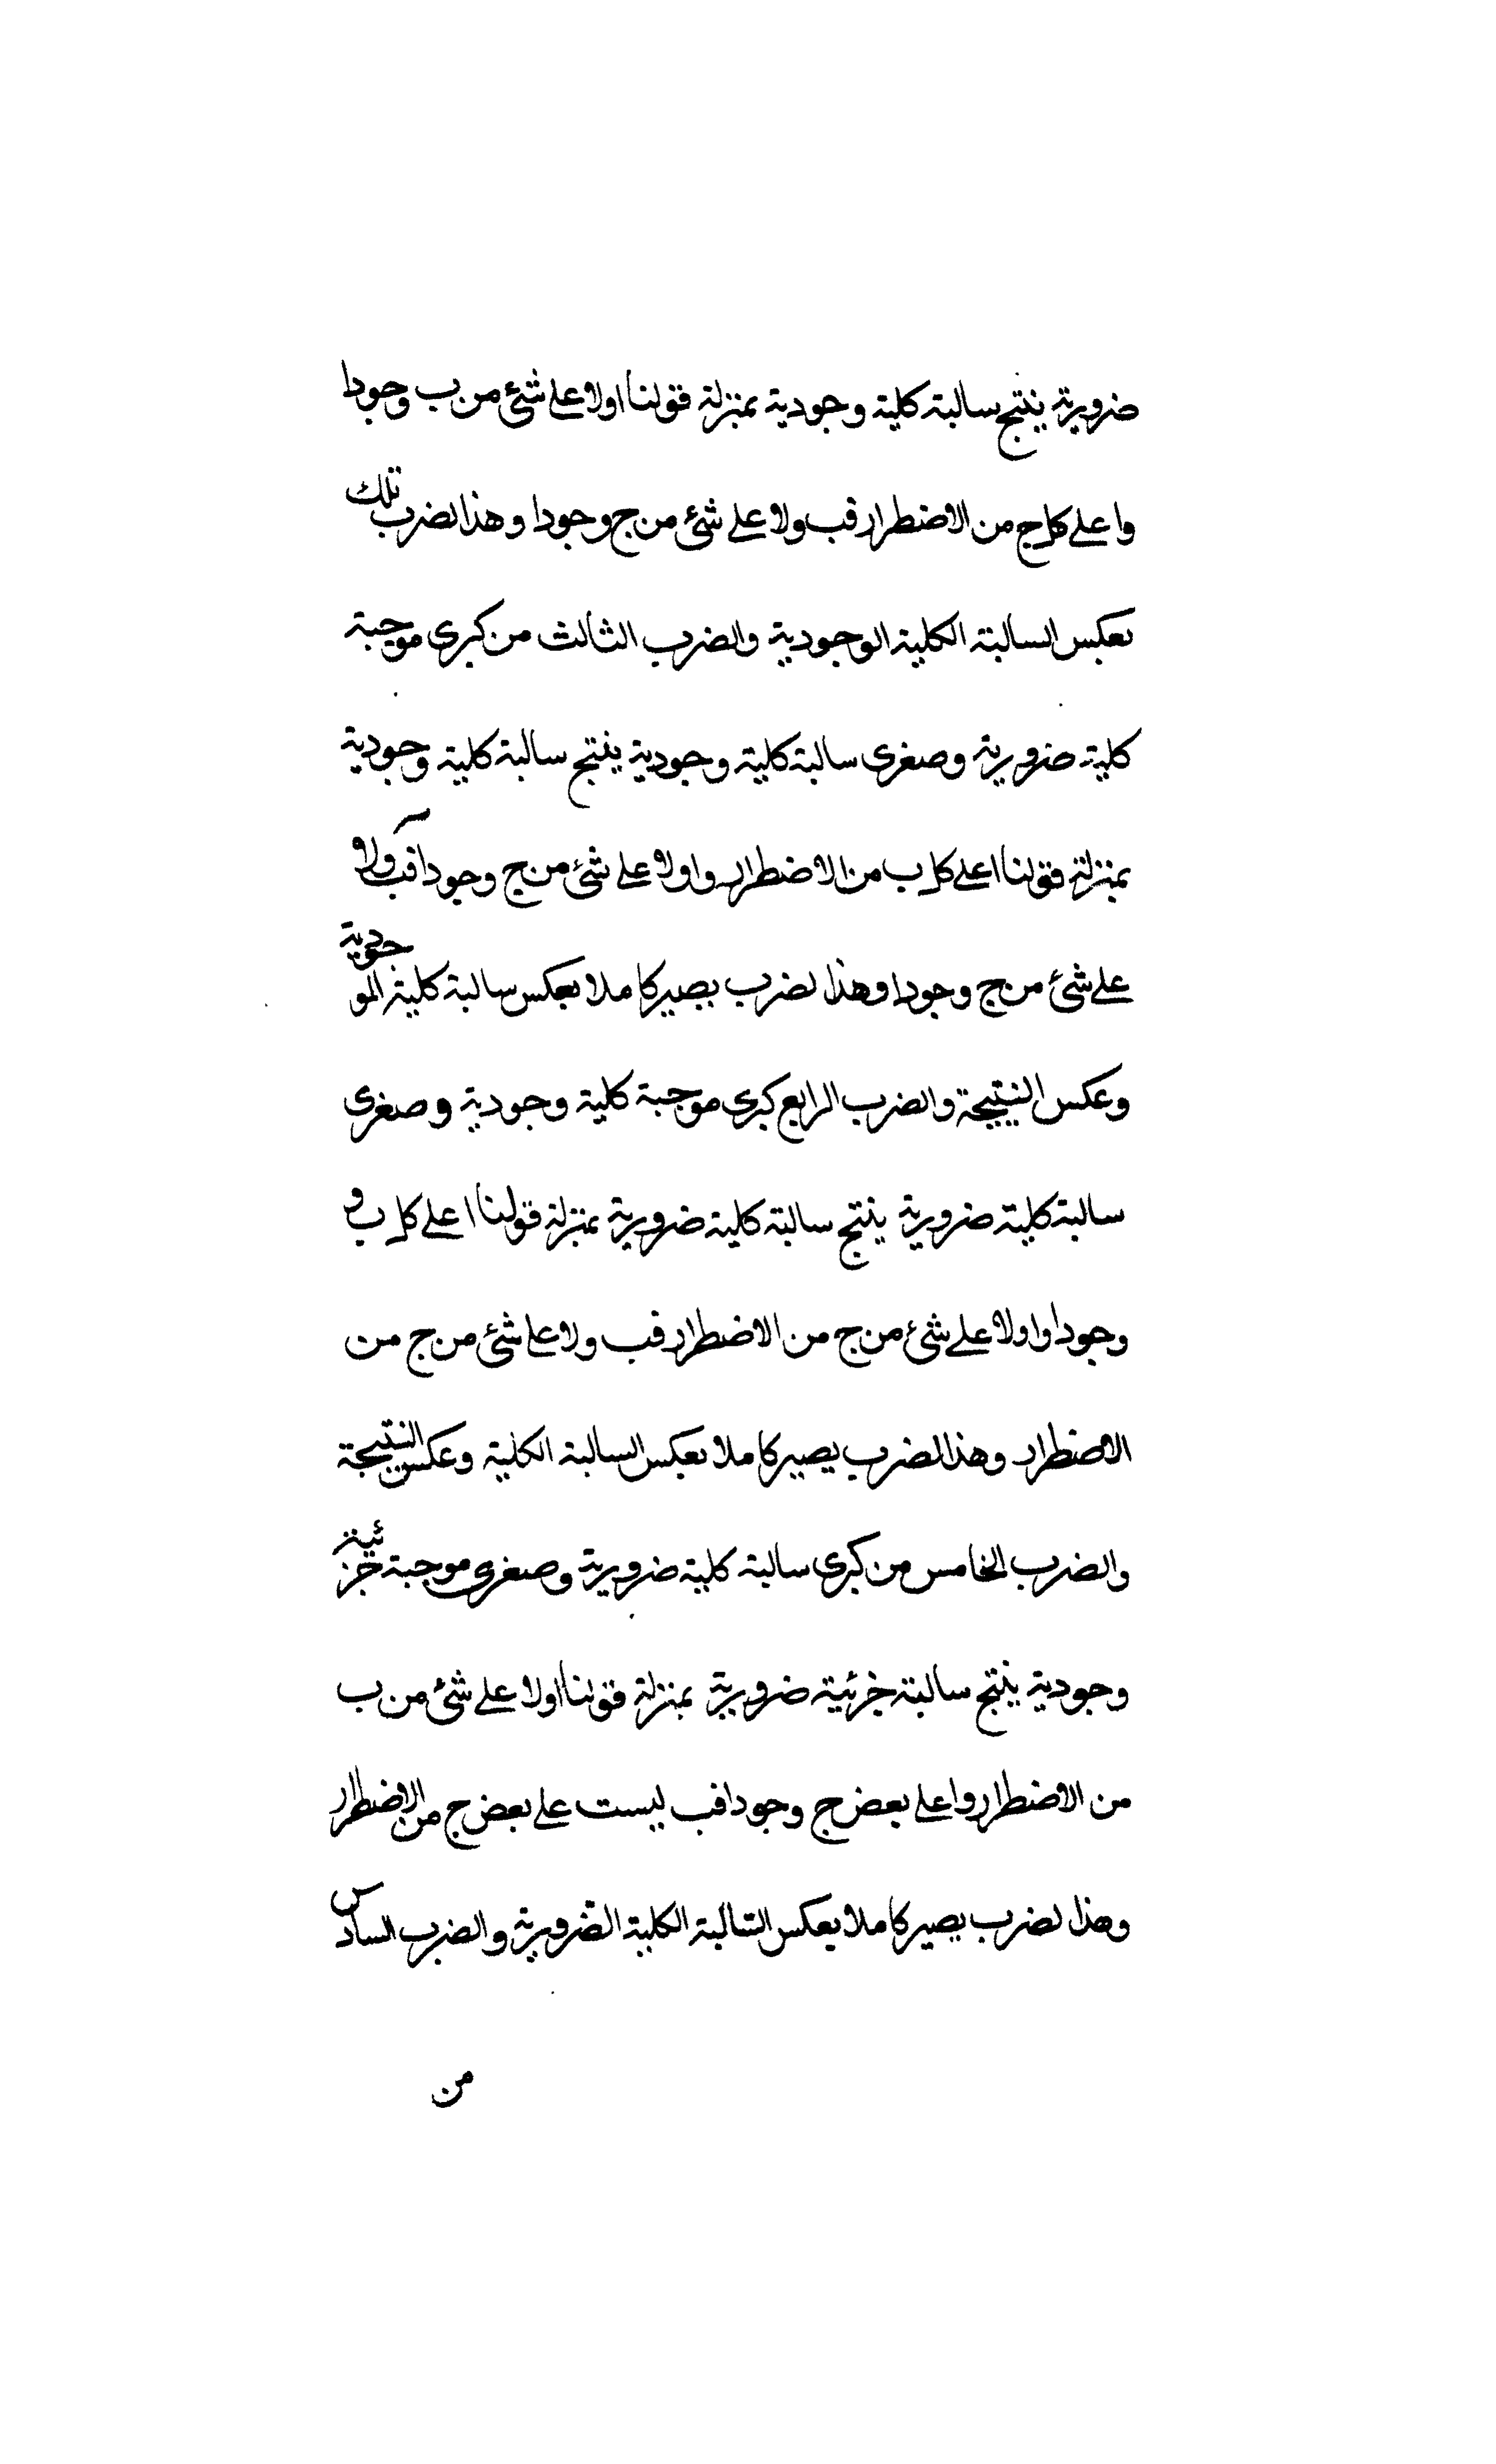 ضرورية ينتج سالبة كلية وجودية بمنزلة قولنا ا ولا على شئ من ب وجودا
وا على كل ج من الاضطرار فب ولا على شئ من ج وجودا وهذا لضرب تلك
بعكس السالبة الكلية الوجودية والضرب الثالث من كبرى موجبة
كلية ضرورية وصغرى سالبة كلية وجودية ينتج سالبة كلية وجودية
بمنزلة قولنا ا على كل ب من الاضطرار وا ولا على شئ من ج وجودا فب ولا
على شئ من ج وجودا وهذا لضرب يصير كاملا بعكس سالبة كلية الوجودية
وعكس النتيجة والضرب الرابع كبرى موجبة كلية وجودية وصغرى
سالبة كلية ضرورية ينتج سالبة كلية ضرورية بمنزلة قولنا ا على كل ب و
وجودا وا ولا على شئ من ج من الاضطرار فب ولا على شئ من ج من
الاضطرار وهذا لضرب يصير كاملا بعكس السالبة الكلية وعكس النتيجة
والضرب الخامس من كبرى سالبة كلية ضرورية وصغرى موجبة جزئية
وجودية ينتج سالبة جزئية ضرورية بمنزلة قولنا ا ولا على شئ من ب
من الاضطرار وا على بعض ج وجودا فب ليست على بعض ج من الاضطرار
وهذا لضرب يصير كاملا بعكس السالبة الكلية الضرورية والضرب السادس
من